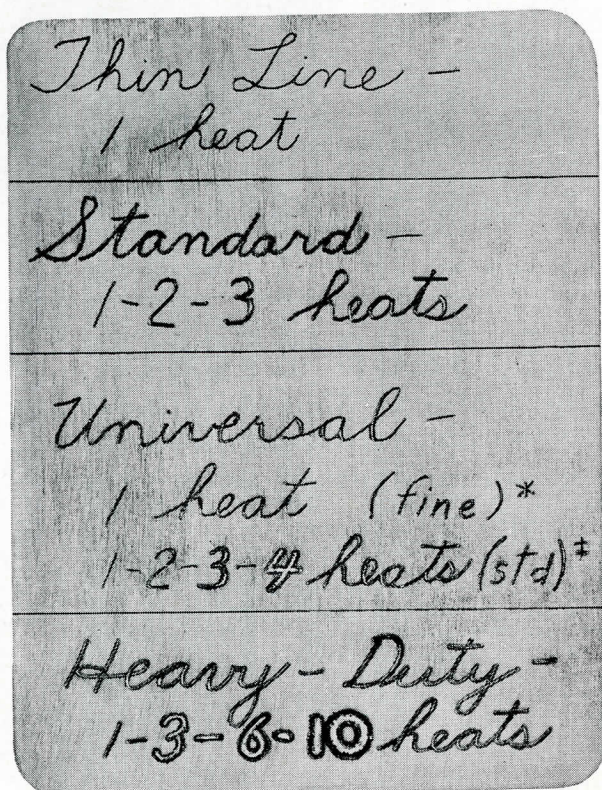 Thin Line -
1 heat
Standard -
1-2-3 heats
Universal -
1 heat (fine)*
1-2-3-4 heats (std)‡
Heavy-Duty-
1-3-6-10 heats